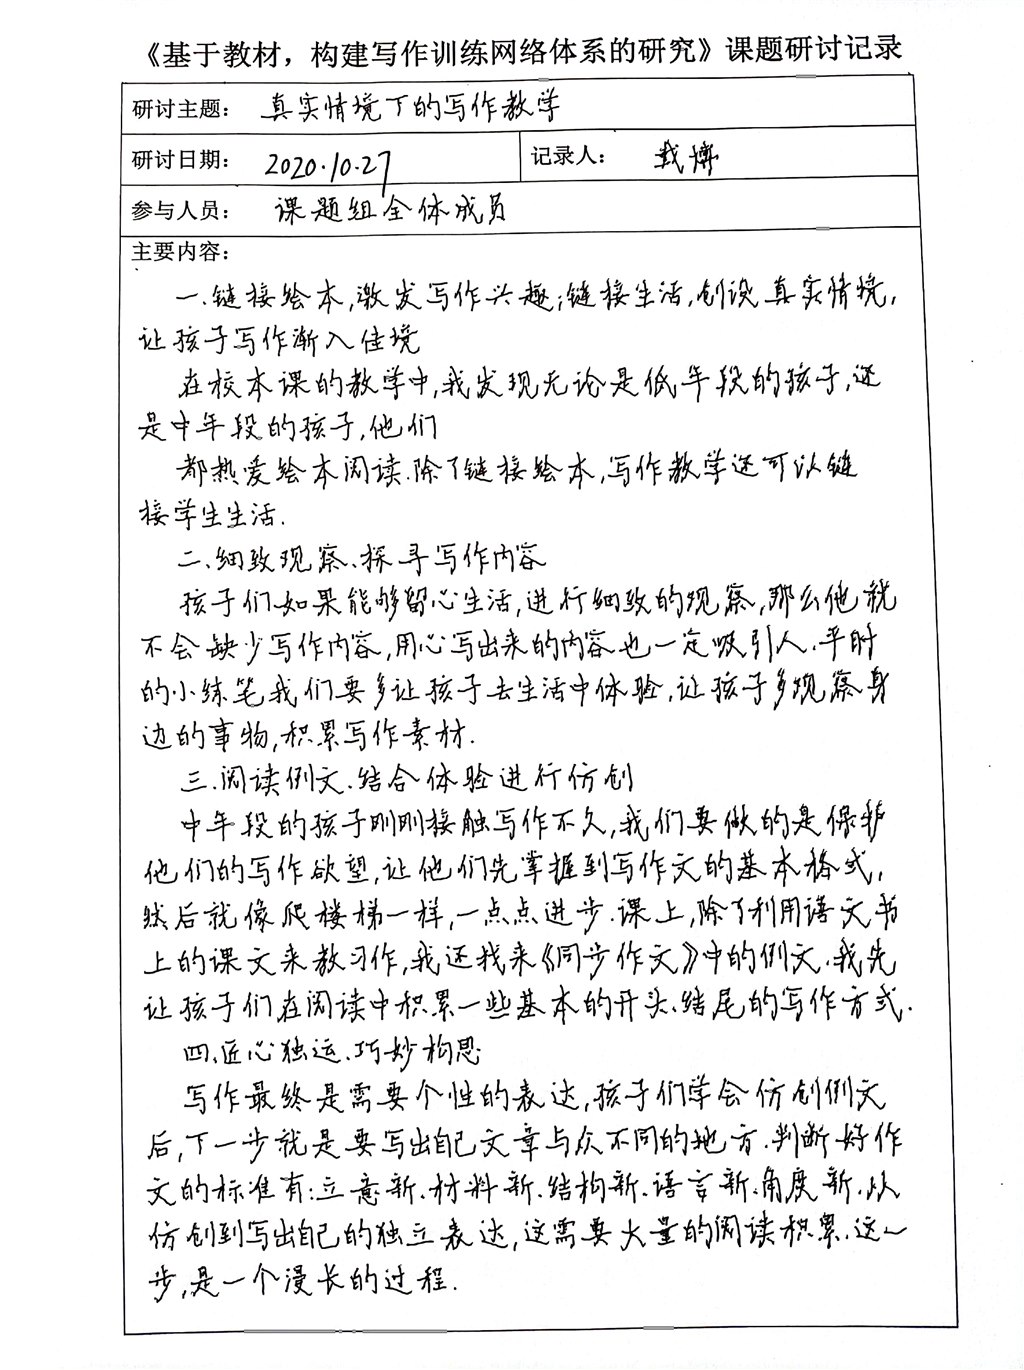 《基于教材，构建写作训练网络体系的研究》课题研讨记录
研讨主题： 真实情境下的写作教学
研讨日期： 2020.10.27 记录人：
参与人员： 课题组全体成员
主要内容：
一.链接绘本,激发写作兴趣;链接生活,创设真实情境,
让孩子写作渐入佳境
在校本课的教学中,我发现无论是低年段的孩子,还
是中年段的孩子,他们
都热爱绘本阅读.除了链接绘本,写作教学还可以链
接学生生活.
二.细致观察.探寻写作内容
孩子们如果能够留心生活,进行细致的观察,那么他就
不会缺少写作内容,用心写出来的内容也一定吸引人.平时
的小练笔我们要多让孩子去生活中体验,让孩子多观察身
边的事物,积累写作素材.
三.阅读例文.结合体验进行仿创
中年段的孩子刚刚接触写作不久,我们要做的是保护
他们的写作欲望,让他们先掌握到写作文的基本格式,
然后就像爬楼梯一样,一点点进步.课上,除了利用语文书
上的课文来教习作,我还找来《同步作文》中的例文.我先
让孩子们在阅读中积累一些基本的开头.结尾的写作方式.
四.匠心独运.巧妙构思
写作最终是需要个性的表达,孩子们学会仿创例文
后,下一步就是要写出自己文章与众不同的地方.判断好作
文的标准有:立意新.材料新.结构新.语言新.角度新.从
仿创到写出自己的独立表达,这需要大量的阅读积累.这一
步,是一个漫长的过程.